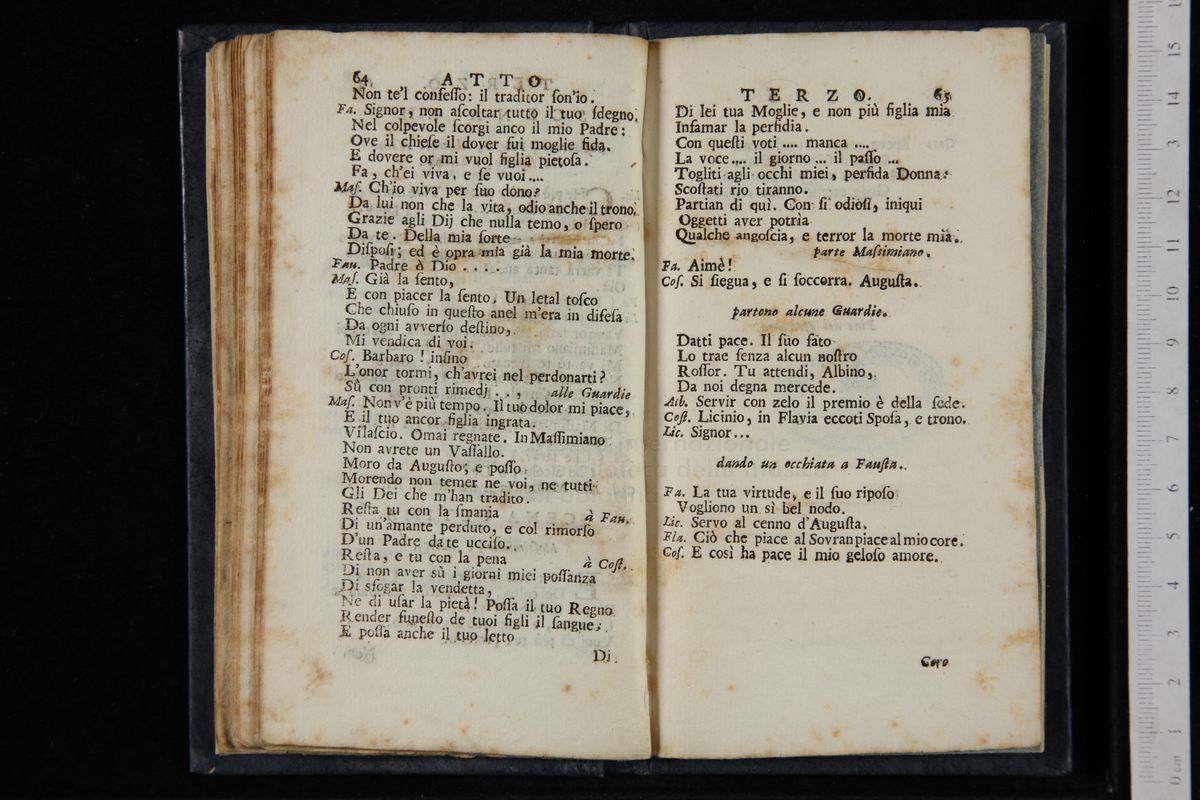 64 ATTO
Non te'l confeſſo: il traditor ſon'io.
Fa. Signor, non aſcoltar tutto il tuo ſdegno.
Nel colpevole ſcorgi anco il mio Padre:
Ove il chieſe il dover fui moglie fida.
E dovere or mi vuol figlia pietoſa.
Fa, ch'ei viva, e ſe vuoi....
Maſ. Ch'io viva per ſuo dono?
Da lui non che la vita, odio anche il trono.
Grazie agli Dij che nulla temo, o ſpero
Da te. Della mia ſorte
Diſpoſi; ed è opra mia già la mia morte.
Fau. Padre ò Dio....
Maſ. Già la ſento,
E con piacer la ſento. Un letal toſco
Che chiuſo in queſto anel m'era in difeſa
Da ogni avverſo deſtino,
Mi vendica di voi.
Coſ. Barbaro! inſino
L'onor tormi, ch'avrei nel perdonarti?
Sù con pronti rimedj..., alle Guardie
Maſ. Non v'è più tempo. Il tuo dolor mi piace,
E il tuo ancor figlia ingrata.
Vilaſcio. Omai regnate. In Maſſimiano
Non avrete un Vaſſallo.
Moro da Auguſto; e poſſo
Morendo non temer ne voi, ne tutti
Gli Dei che m'han tradito.
Reſta tu con la ſmania à Fau.
Di un'amante perduto, e col rimorſo
D'un Padre da te ucciſo.
Reſta, e tu con la pena à Coſt.
Di non aver sù i giorni miei poſſanza
Di sfogar la vendetta,
Ne di uſar la pietà! Poſſa il tuo Regno
Render funeſto de tuoi figli il ſangue;
E poſſa anche il tuo letto
Di
TERZO. 65
Di lei tua Moglie, e non più figlia mia
Infamar la perfidia.
Con queſti voti .... manca ....
La voce.... il giorno ... il paſſo ...
Togliti agli occhi miei, perfida Donna:
Scoſtati rio tiranno.
Partian di quì. Con ſi odioſi, iniqui
Oggetti aver potria
Qualche angoſcia, e terror la morte mia.
parte Maſsimiano.
Fa. Aimè!
Coſ. Si ſiegua, e ſi ſoccorra. Auguſta.
partono alcune Guardie.
Datti pace. Il ſuo fato
Lo trae ſenza alcun noſtro
Roſſor. Tu attendi, Albino,
Da noi degna mercede.
Alb. Servir con zelo il premio è della fede.
Coſt. Licinio, in Flavia eccoti Spoſa, e trono.
Lic. Signor...
dando un occhiata a Fauſta.
Fa. La tua virtude, e il ſuo ripoſo
Vogliono un sì bel nodo.
Lic. Servo al cenno d'Auguſta.
Fla. Ciò che piace al Sovran piace al mio core.
Coſ. E così ha pace il mio geloſo amore.
Coro
15
14
13
12
11
10
9
8
7
6
5
4
3
2
1
0 cm